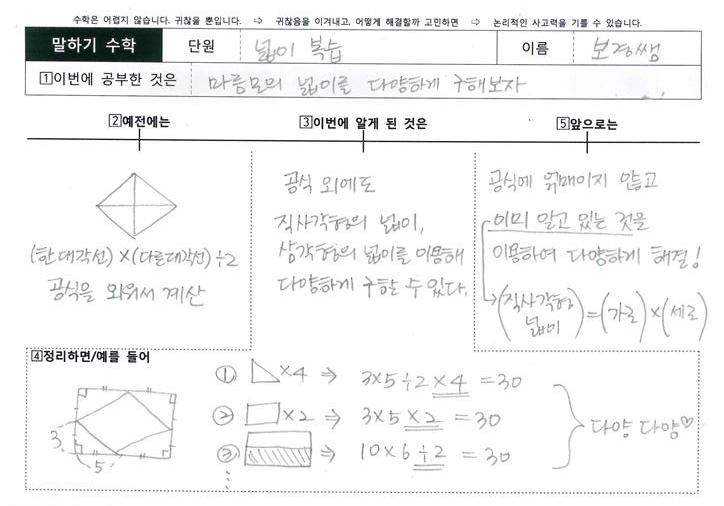 수학은 어렵지 않습니다. 귀찮을 뿐입니다. ⇨ 귀찮음을 이겨내고, 어떻게 해결할까 고민하면 ⇨ 논리적인 사고력을 기를 수 있습니다.
말하기 수학 단원 넓이 복습 이름 보경쌤
1이번에 공부한 것은 마름모의 넓이를 다양하게 구해보자
2예전에는
(한 대각선)×(다른대각선)÷2
공식을 외워서 계산
3이번에 알게 된 것은
공식 외에도
직사각형의 넓이,
삼각형의 넓이를 이용해
다양하게 구할 수 있다.
5앞으로는
공식에 얽매이지 않고
이미 알고 있는 것을
이용하여 다양하게 해결!
(직사각형 넓이)=(가로)×(세로)
4정리하면/예를 들어
3
5
① ×4 ⇒ 3×5÷2×4=30
② ×2 ⇒ 3×5×2=30
③ ⇒ 10×6÷2=30
다양 다양♡